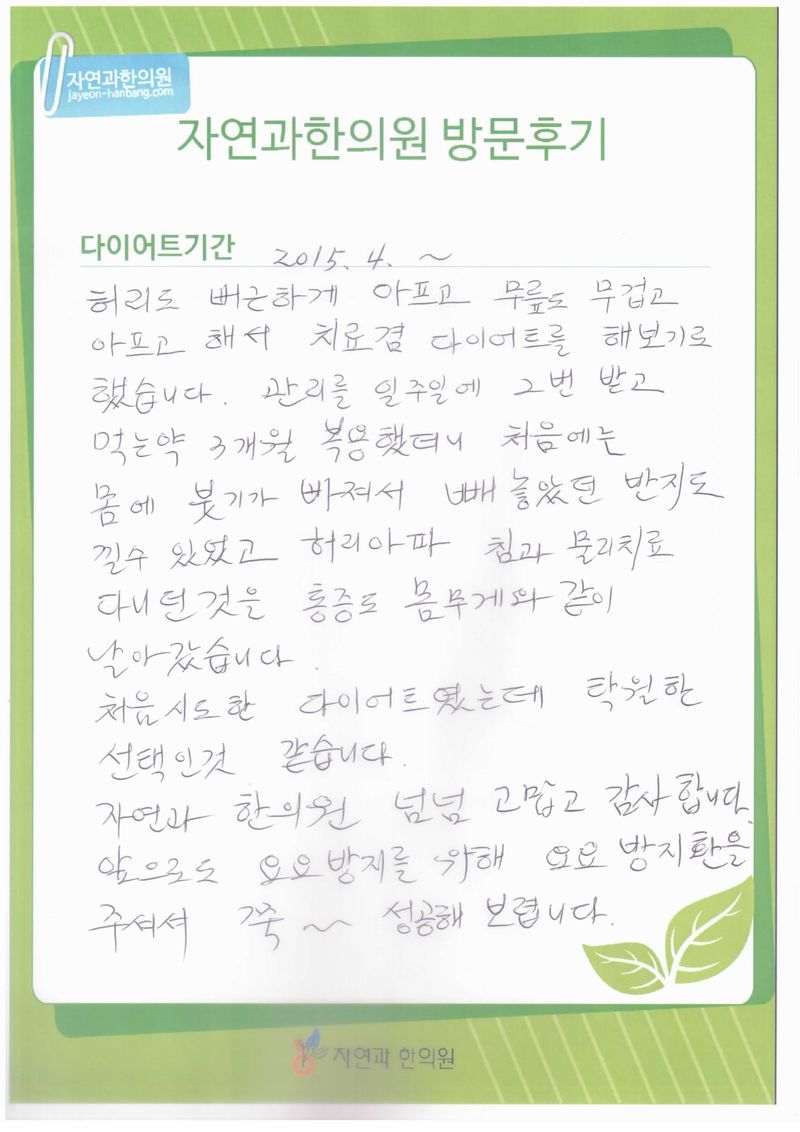 자연과한의원
jayeon-hanbang.com
자연과한의원 방문후기
다이어트기간 2015. 4. ~
허리도 뻐근하게 아프고 무릎도 무겁고
아프고 해서 치료겸 다이어트를 해보기로
했습니다. 관리를 일주일에 2번 받고
먹는약 3개월 복용했더니 처음에는
몸에 붓기가 빠져서 빼놓았던 반지도
낄수 있었고 허리아파 침과 물리치료
다니던것을 통증도 몸무게와 같이
날아갔습니다.
처음시도한 다이어트였는데 탁월한
선택인것 같습니다.
자연과 한의원 넘넘 고맙고 감사합니다.
앞으로도 요요방지를 위해 요요방지환을
주셔서 쭉~ 성공해 보렵니다.
자연과 한의원